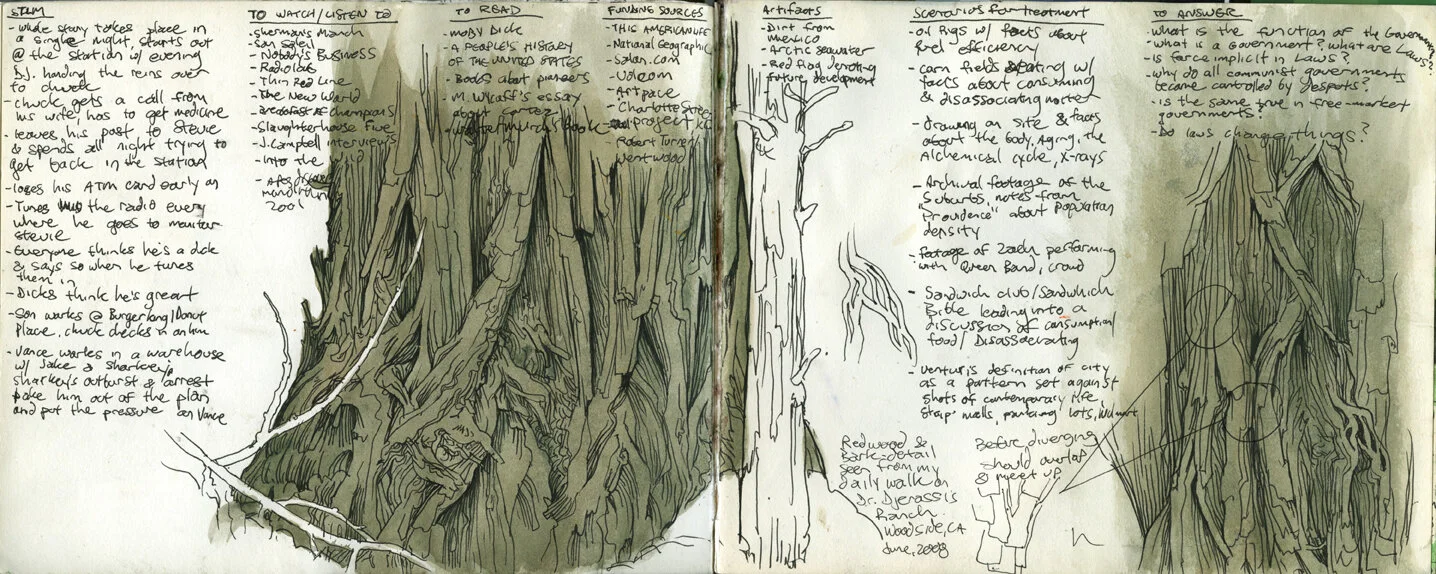 STLM
- whole story takes place in
a single night, starts out
@ the station w/ evening
D.J. handing the reins over
to chuck
- chuck gets a call from
his wife, has to get medicine
- leaves his post to Stevie
& spends all night trying to
get back in the station
- loses his ATM card early on
- Tunes the radio every
where he goes to monitor
stevie
- Everyone thinks he's a dick
& says so when he tunes
them in
- Dicks think he's great
- Son works @ Burgerlong/Donut
Place, chuck checks in on him
- Vance works in a warehouse
w/ Jake & sharkey,
sharkey's outburst & arrest
poke him out of the plan
and put the pressure on Vance
TO WATCH/LISTEN TO
- sherman's March
- san soleil
- Nobody's Business
- Radiolab
- Thin Red Line
- The New World
- Breakfast of champions
- Slaughterhouse Five
- J. Campbell interviews
- Into the Wild
2001
TO READ
- MOBY DICK
- A PEOPLE'S HISTORY
OF THE UNITED STATES
- Books about pioneers
- M. essay
about cortez
- book
FUNDING SOURCES
- THIS AMERICAN LIFE
- National Geographic
- Salon.com
- Artpace
- Charlotte Street
project
- Robert Turrell
Wentwood
Artifacts
- Dirt from
mexico
- Arctic seawater
- Red flag denoting
future development
Scenarios for treatment
- oil rigs w/ facts about
fuel efficiency
- corn fields w/
facts about consuming
& disassociating
- drawing on site & facts
about the body, Aging, the
Alchemical cycle, X-rays
- Archival footage of the
Suburbs, notes from
"Providence" about population
density
- footage of Zach performing
with Queer Band, crowd
- Sandwich club/Sandwhich
Bible leading into a
discussion of consumption/
food/Disassociating
- Venturi's definition of city
as a pattern set against
shots of contemporary life,
Strip malls, parking lots, Walmart
Redwood &
Bark detail
seen from my
daily walk on
Dr. Djerassi's
Ranch.
Woodside, CA
June, 2008
Before diverging
should overlap
& meet up
TO ANSWER
- what is the function of the Government?
- what is a government? what are Laws?
- is force implicit in Laws?
- why do all communist governments
become controlled by despots?
- is the same true in free-market
governments?
- Do laws change things?